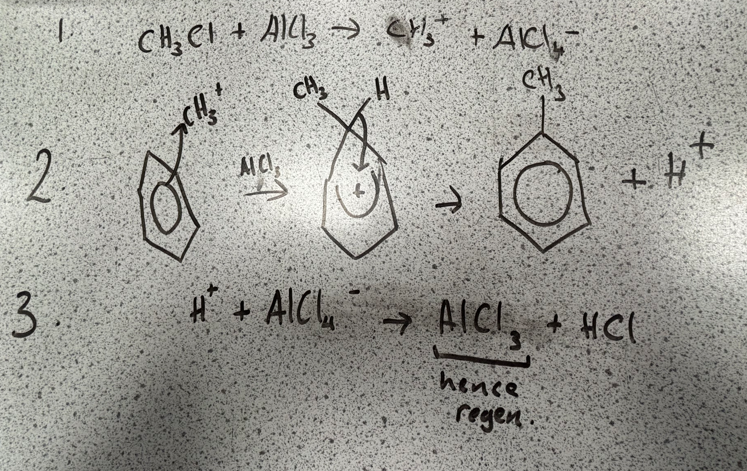 1. CH₃Cl + AlCl₃ → CH₃⁺ + AlCl₄⁻
CH₃
CH₃⁺ CH₃ H
2 AlCl₃ → + → + H⁺
3. H⁺ + AlCl₄⁻ → AlCl₃ + HCl
hence
regen.